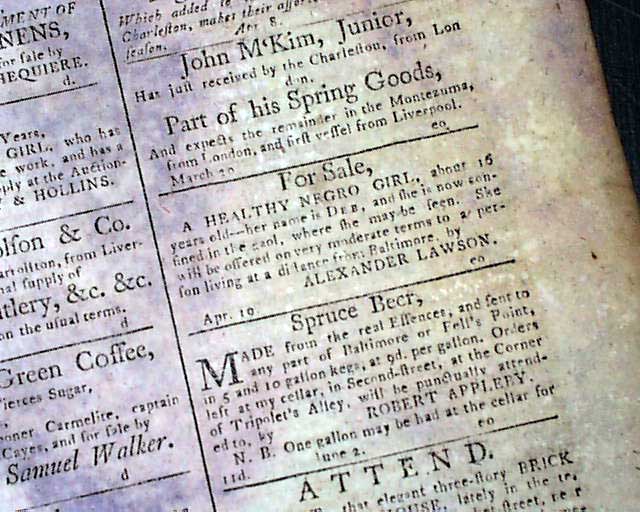 MENT OF
NENS,
for sale by
HEQUIERE.
d.
Years,
GIRL, who has
e work, and has a
ply at the Auction-
& HOLLINS.
olſon & Co.
from Liver-
ſupply of
utlery, &c. &c.
on the uſual terms.
d
Green Coffee,
ierces Sugar,
ooner Carmelite, captain
Cayes, and for ſale by
Samuel Walker.
d
Which added to
Charleſton, makes their
ſeaſon. Apr 8.
John M'Kim, Junior,
Has juſt received by the Charleſton, from Lon
don,
Part of his Spring Goods,
And expects the remainder in the Montezuma,
from London, and firſt veſſel from Liverpool.
March 30 eo
For Sale,
A HEALTHY NEGRO GIRL, about 16
years old—her name is DEB, and ſhe is now con-
fined in the gaol, where ſhe may be ſeen. She
will be offered on very moderate terms to a per-
ſon living at a diſtance from Baltimore, by
ALEXANDER LAWSON.
Apr. 10 eo
Spruce Beer,
MADE from the real Eſſences, and ſent to
any part of Baltimore or Fell's Point,
in 5 and 10 gallon kegs, at 9d. per gallon. Orders
left at my cellar, in Second-ſtreet, at the Corner
of Tripolet's Alley, will be punctually attend-
ed to, by ROBERT APPLEBY.
N. B. One gallon may be had at the cellar for
11d. June 2. eo
ATTEND.
that elegant three-ſtory BRICK
HOUSE, lately in the
ſtreet,